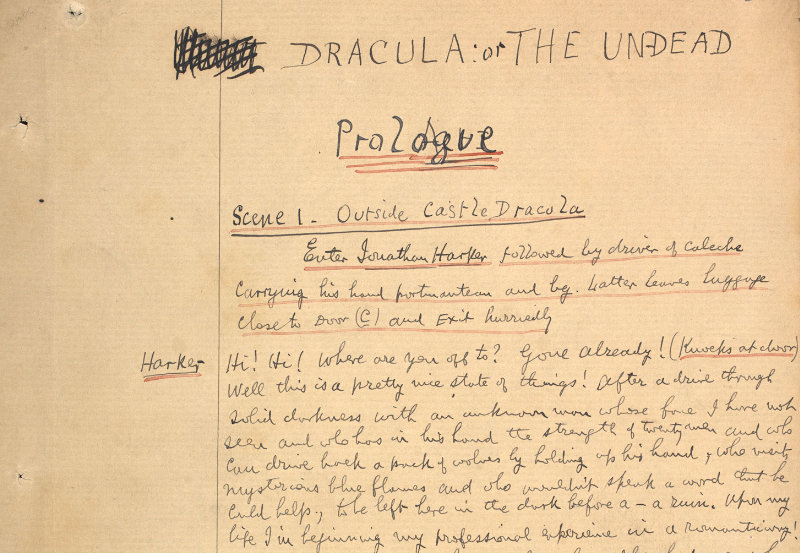 DRACULA: or THE UNDEAD
Prologue
Scene 1 - Outside Castle Dracula
Enter Jonathan Harker followed by driver of caleche
carrying his hand portmanteau and bag. Latter leaves luggage
close to Door (C) and Exit hurriedly
Harker Hi! Hi! Where are you off to? Gone already! (Knocks at door)
Well this is a pretty nice state of things! After a drive through
solid darkness with an unknown man whose face I have not
seen and who has in his hand the strength of twenty men and who
can drive back a pack of wolves by holding up his hand, who visits
mysterious blue flames and who wouldn't speak a word that he
could help, to be left here in the dark before a - a ruin. Upon my
life I'm beginning my professional experience in a romantic way!